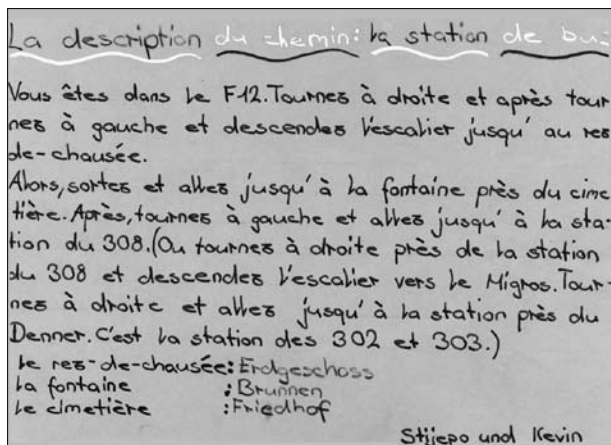 La description du chemin: la station de bus
Vous êtes dans le F12. Tournez à droite et après tour
nez à gauche et descendez l'escalier jusqu'au rez
de-chausée.
Alors, sortez et allez jusqu'à la fontaine près du cime
tière. Après, tournez à gauche et allez jusqu'à la sta-
tion du 308. (Ou tournez à droite près de la station
du 308 et descendez l'escalier vers le Migros. Tour-
nez à droite et allez jusqu'à la station près du
Denner. C'est la station des 302 et 303.)
le rez-de-chausée: Erdgeschoss
la fontaine : Brunnen
le cimetière : Friedhof
Stijepo und Kevin